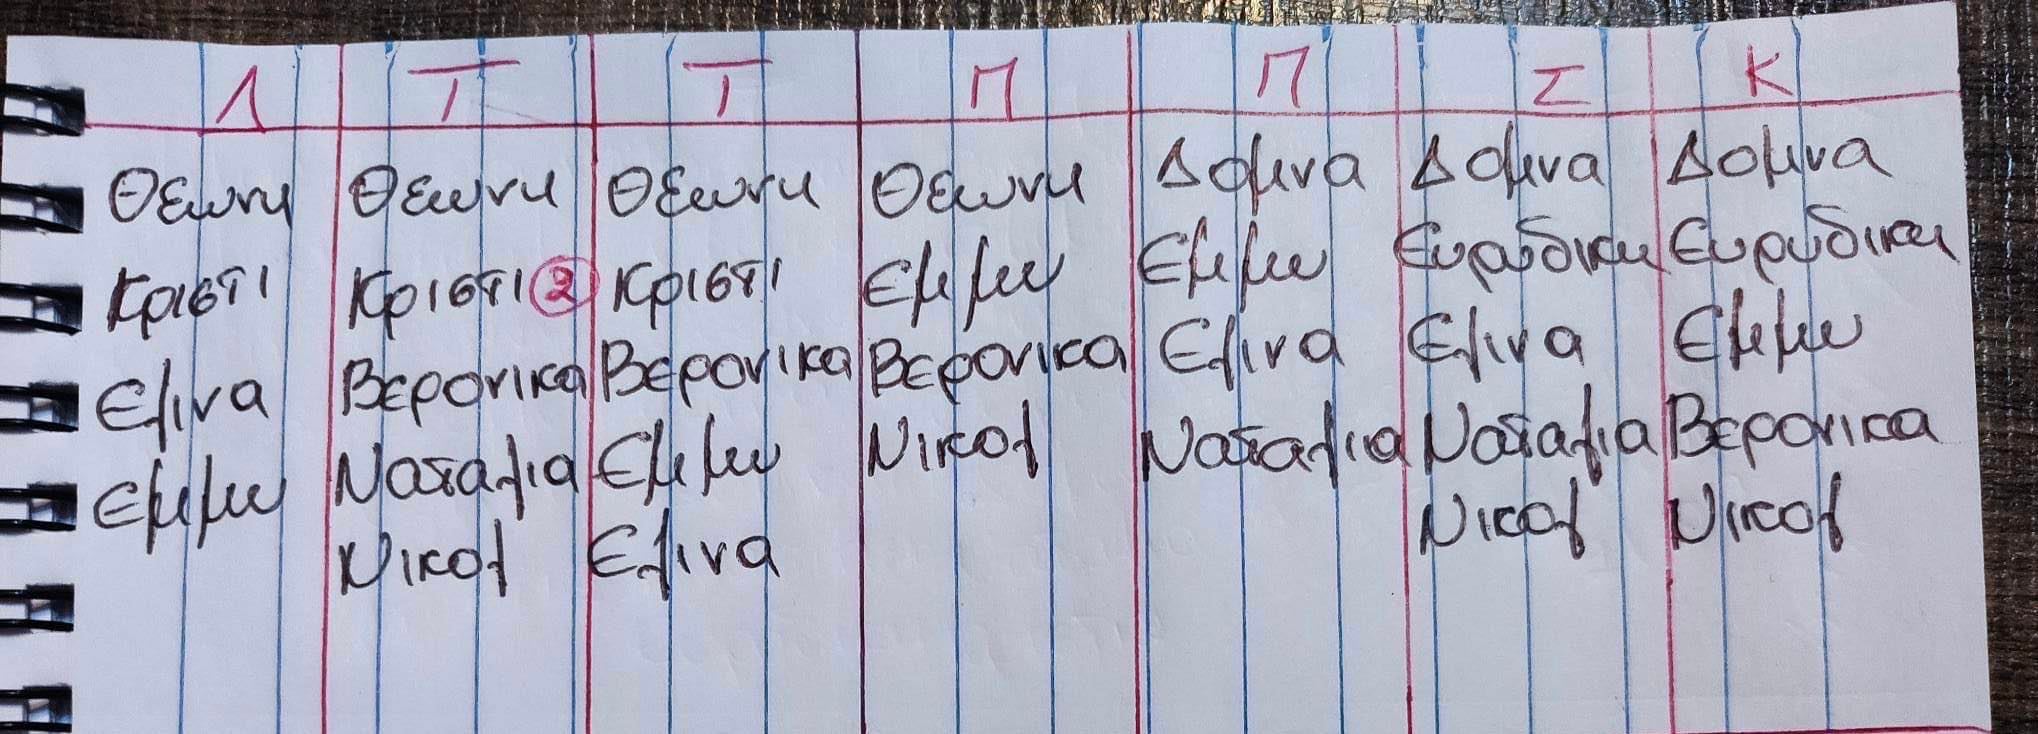 Λ Τ Τ Π Π Σ Κ
Θεωνη Θεωνη Θεωνη Θεωνη Δομνα Δομνα Δομνα
Κριστι Κριστι 2 Κριστι Εμμυ Εμμυ Ευρυδικη Ευρυδικη
Ελινα Βερονικα Βερονικα Βερονικα Ελινα Ελινα Εμμυ
Εμμυ Ναταλια Εμμυ Νικολ Ναταλια Ναταλια Βερονικα
Νικολ Ελινα Νικολ Νικολ